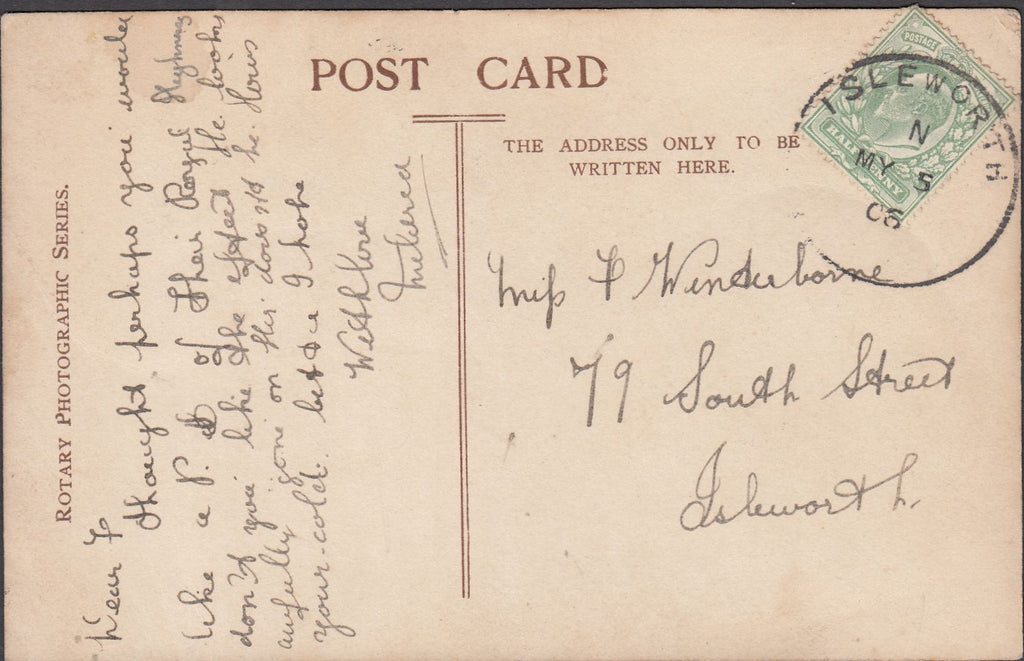 POST CARD
THE ADDRESS ONLY TO BE
WRITTEN HERE.
ROTARY PHOTOGRAPHIC SERIES.
POSTAGE
HALFPENNY
ISLEWORTH
N
MY 5
06
Miss F Winterborne
79 South Street
Isleworth.
Dear F
thought perhaps you would
like a P. of Their Royal Highness
don't you like the He looks
awfully gone on Her does it he. Hows
your cold. better I hope
With love